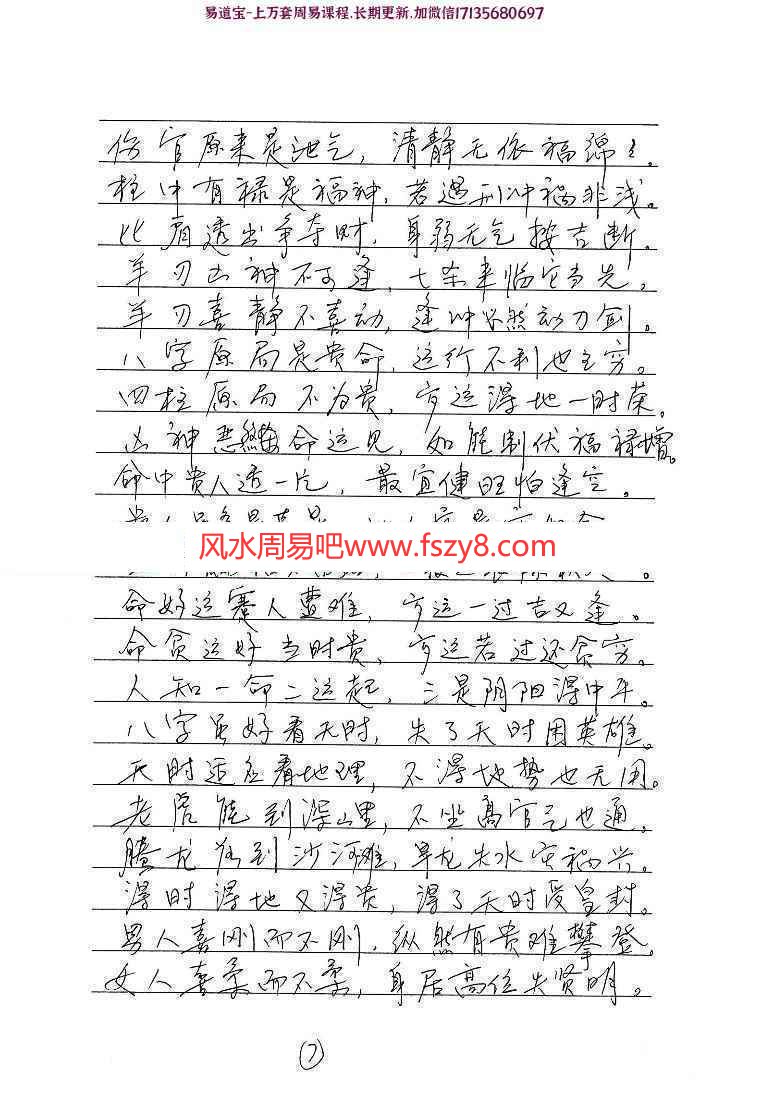 易道宝-上万套周易课程.长期更新.加微信17135680697
伤官原来是泄气，清静无依福绵々。
柱中有禄是福神，若遇刑冲祸非浅。
比肩透出争夺财，身弱无气按吉断。
羊刃凶神不可逢，七杀来临它当先。
羊刃喜静不喜动，逢冲必然动刀剑。
八字原局是贵命，运行不利也主穷。
四柱原局不为贵，亨运得地一时荣。
凶神恶煞命运见，如能制伏福禄增。
命中贵人透一片，最宜健旺怕逢空。
风水周易吧www.fszy8.com
命好运蹇人遭难，亨运一过吉又逢。
命贫运好当时贵，亨运若过还贫穷。
人知一命二运起，三是阴阳得中平。
八字虽好看天时，失了天时困英雄。
天时适应看地理，不得地势也无用。
老虎能到深山里，不坐高官己也通。
腾龙若到沙河滩，旱龙失水灾祸兴。
得时得地又得贵，得了天时受皇封。
男人喜刚而不刚，纵然有贵难攀登。
女人喜柔而不柔，身居高位失贤明。
⑦